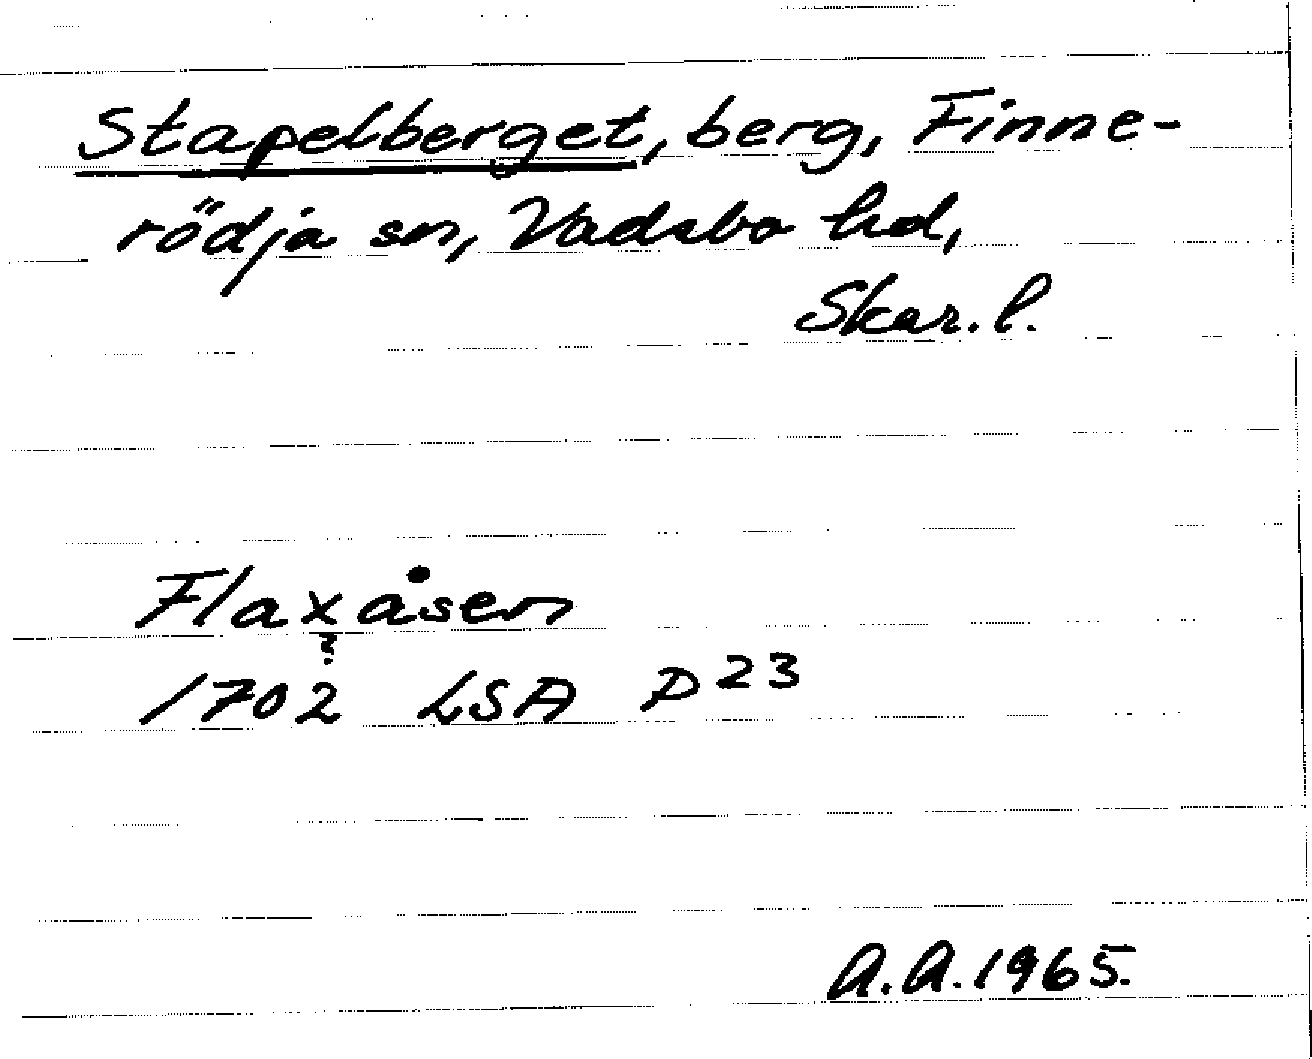 Stapelberget, berg, Finne-
rödja sn, Vadsbo hd,
Skar. l.
Flaxåsen
?
1702 LSA P 23
A.A. 1965.